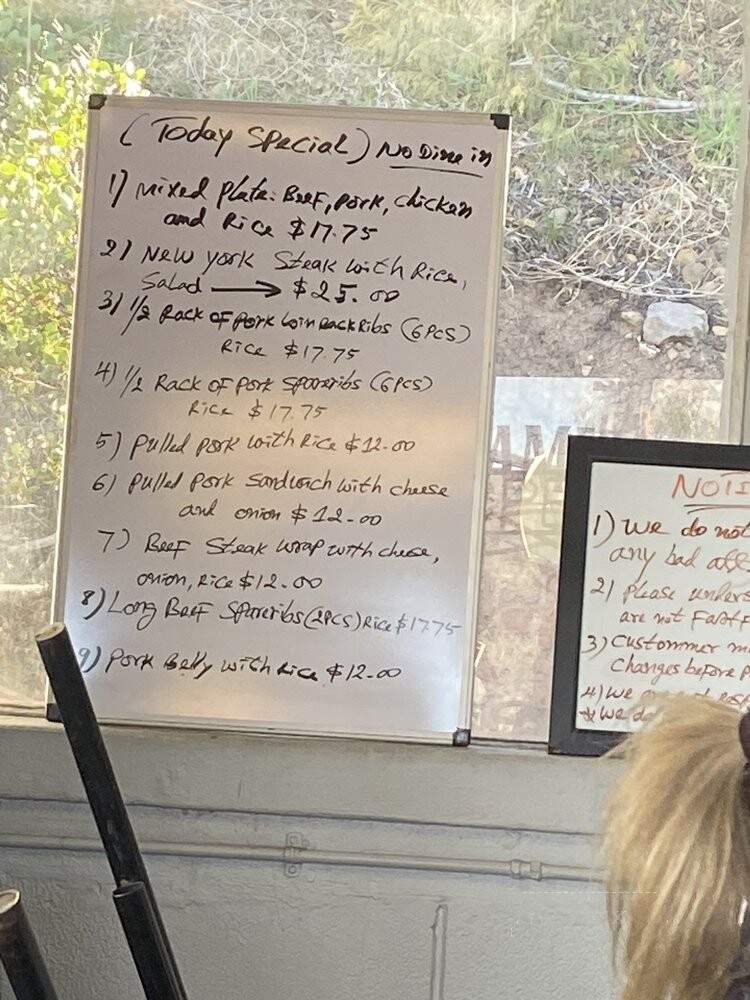 (Today Special) No Dine in
1) Mixed Plate: Beef, Pork, chicken
and Rice $17.75
2) New york Steak with Rice,
Salad → $25.00
3) 1/2 Rack of Pork Loin Back Ribs (6PCS)
Rice $17.75
4) 1/2 Rack of Pork Spareribs (6PCS)
Rice $17.75
5) Pulled pork with Rice $12-00
6) Pulled Pork Sandwich with cheese
and onion $12-00
7) Beef Steak wrap with cheese,
onion, Rice $12-00
8) Long Beef Spareribs (2PCS) Rice $17.75
9) Pork Belly with Rice $12-00
NOTI
1) We do not
any bad att
2) Please unders
are not Fast F
3) Custommer m
Changes before P
4) We
* We do